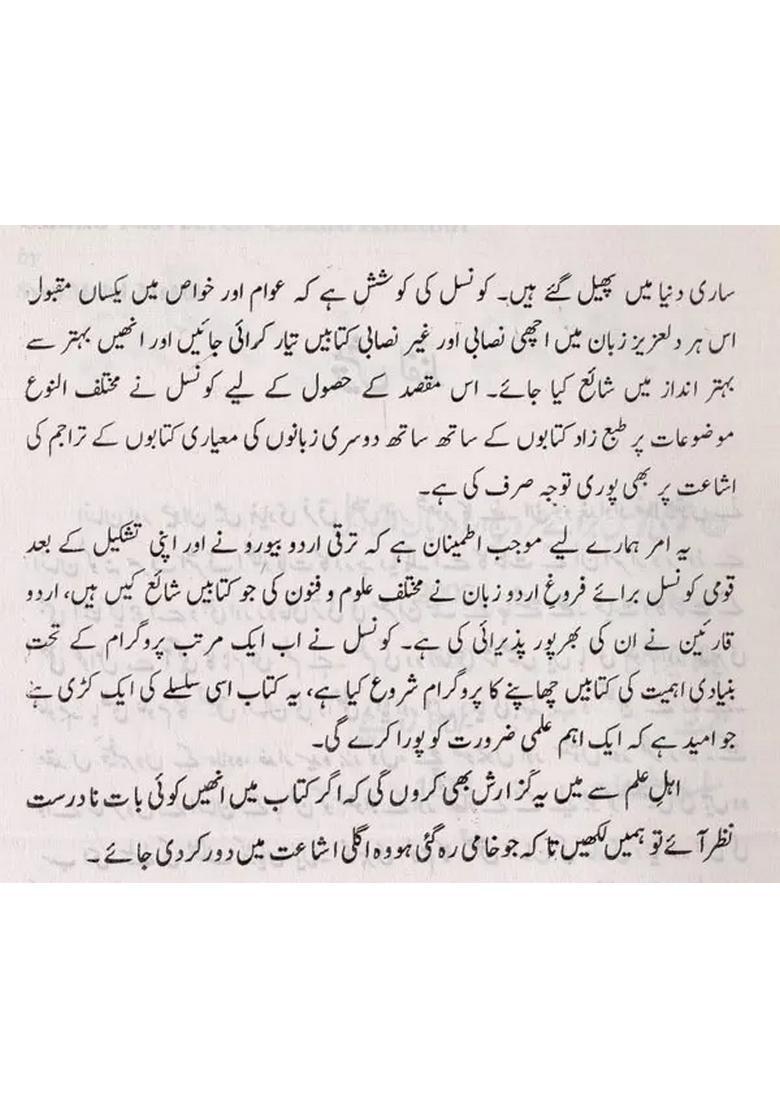 ساری دنیا میں پھیل گئے ہیں۔ کونسل کی کوشش ہے کہ عوام اور خواص میں یکساں مقبول
اس ہر دلعزیز زبان میں اچھی نصابی اور غیر نصابی کتابیں تیار کرائی جائیں اور انھیں بہتر سے
بہتر انداز میں شائع کیا جائے۔ اس مقصد کے حصول کے لیے کونسل نے مختلف النوع
موضوعات پر طبع زاد کتابوں کے ساتھ ساتھ دوسری زبانوں کی معیاری کتابوں کے تراجم کی
اشاعت پر بھی پوری توجہ صرف کی ہے۔
یہ امر ہمارے لیے موجب اطمینان ہے کہ ترقی اردو بیورو نے اور اپنی تشکیل کے بعد
قومی کونسل برائے فروغِ اردو زبان نے مختلف علوم و فنون کی جو کتابیں شائع کیں ہیں، اردو
قارئین نے ان کی بھرپور پذیرائی کی ہے۔ کونسل نے اب ایک مرتب پروگرام کے تحت
بنیادی اہمیت کی کتابیں چھاپنے کا پروگرام شروع کیا ہے، یہ کتاب اسی سلسلے کی ایک کڑی ہے
جو امید ہے کہ ایک اہم علمی ضرورت کو پورا کرے گی۔
اہلِ علم سے میں یہ گزارش بھی کروں گی کہ اگر کتاب میں انھیں کوئی بات نادرست
نظر آئے تو ہمیں لکھیں تاکہ جو خامی رہ گئی ہو وہ اگلی اشاعت میں دور کردی جائے۔